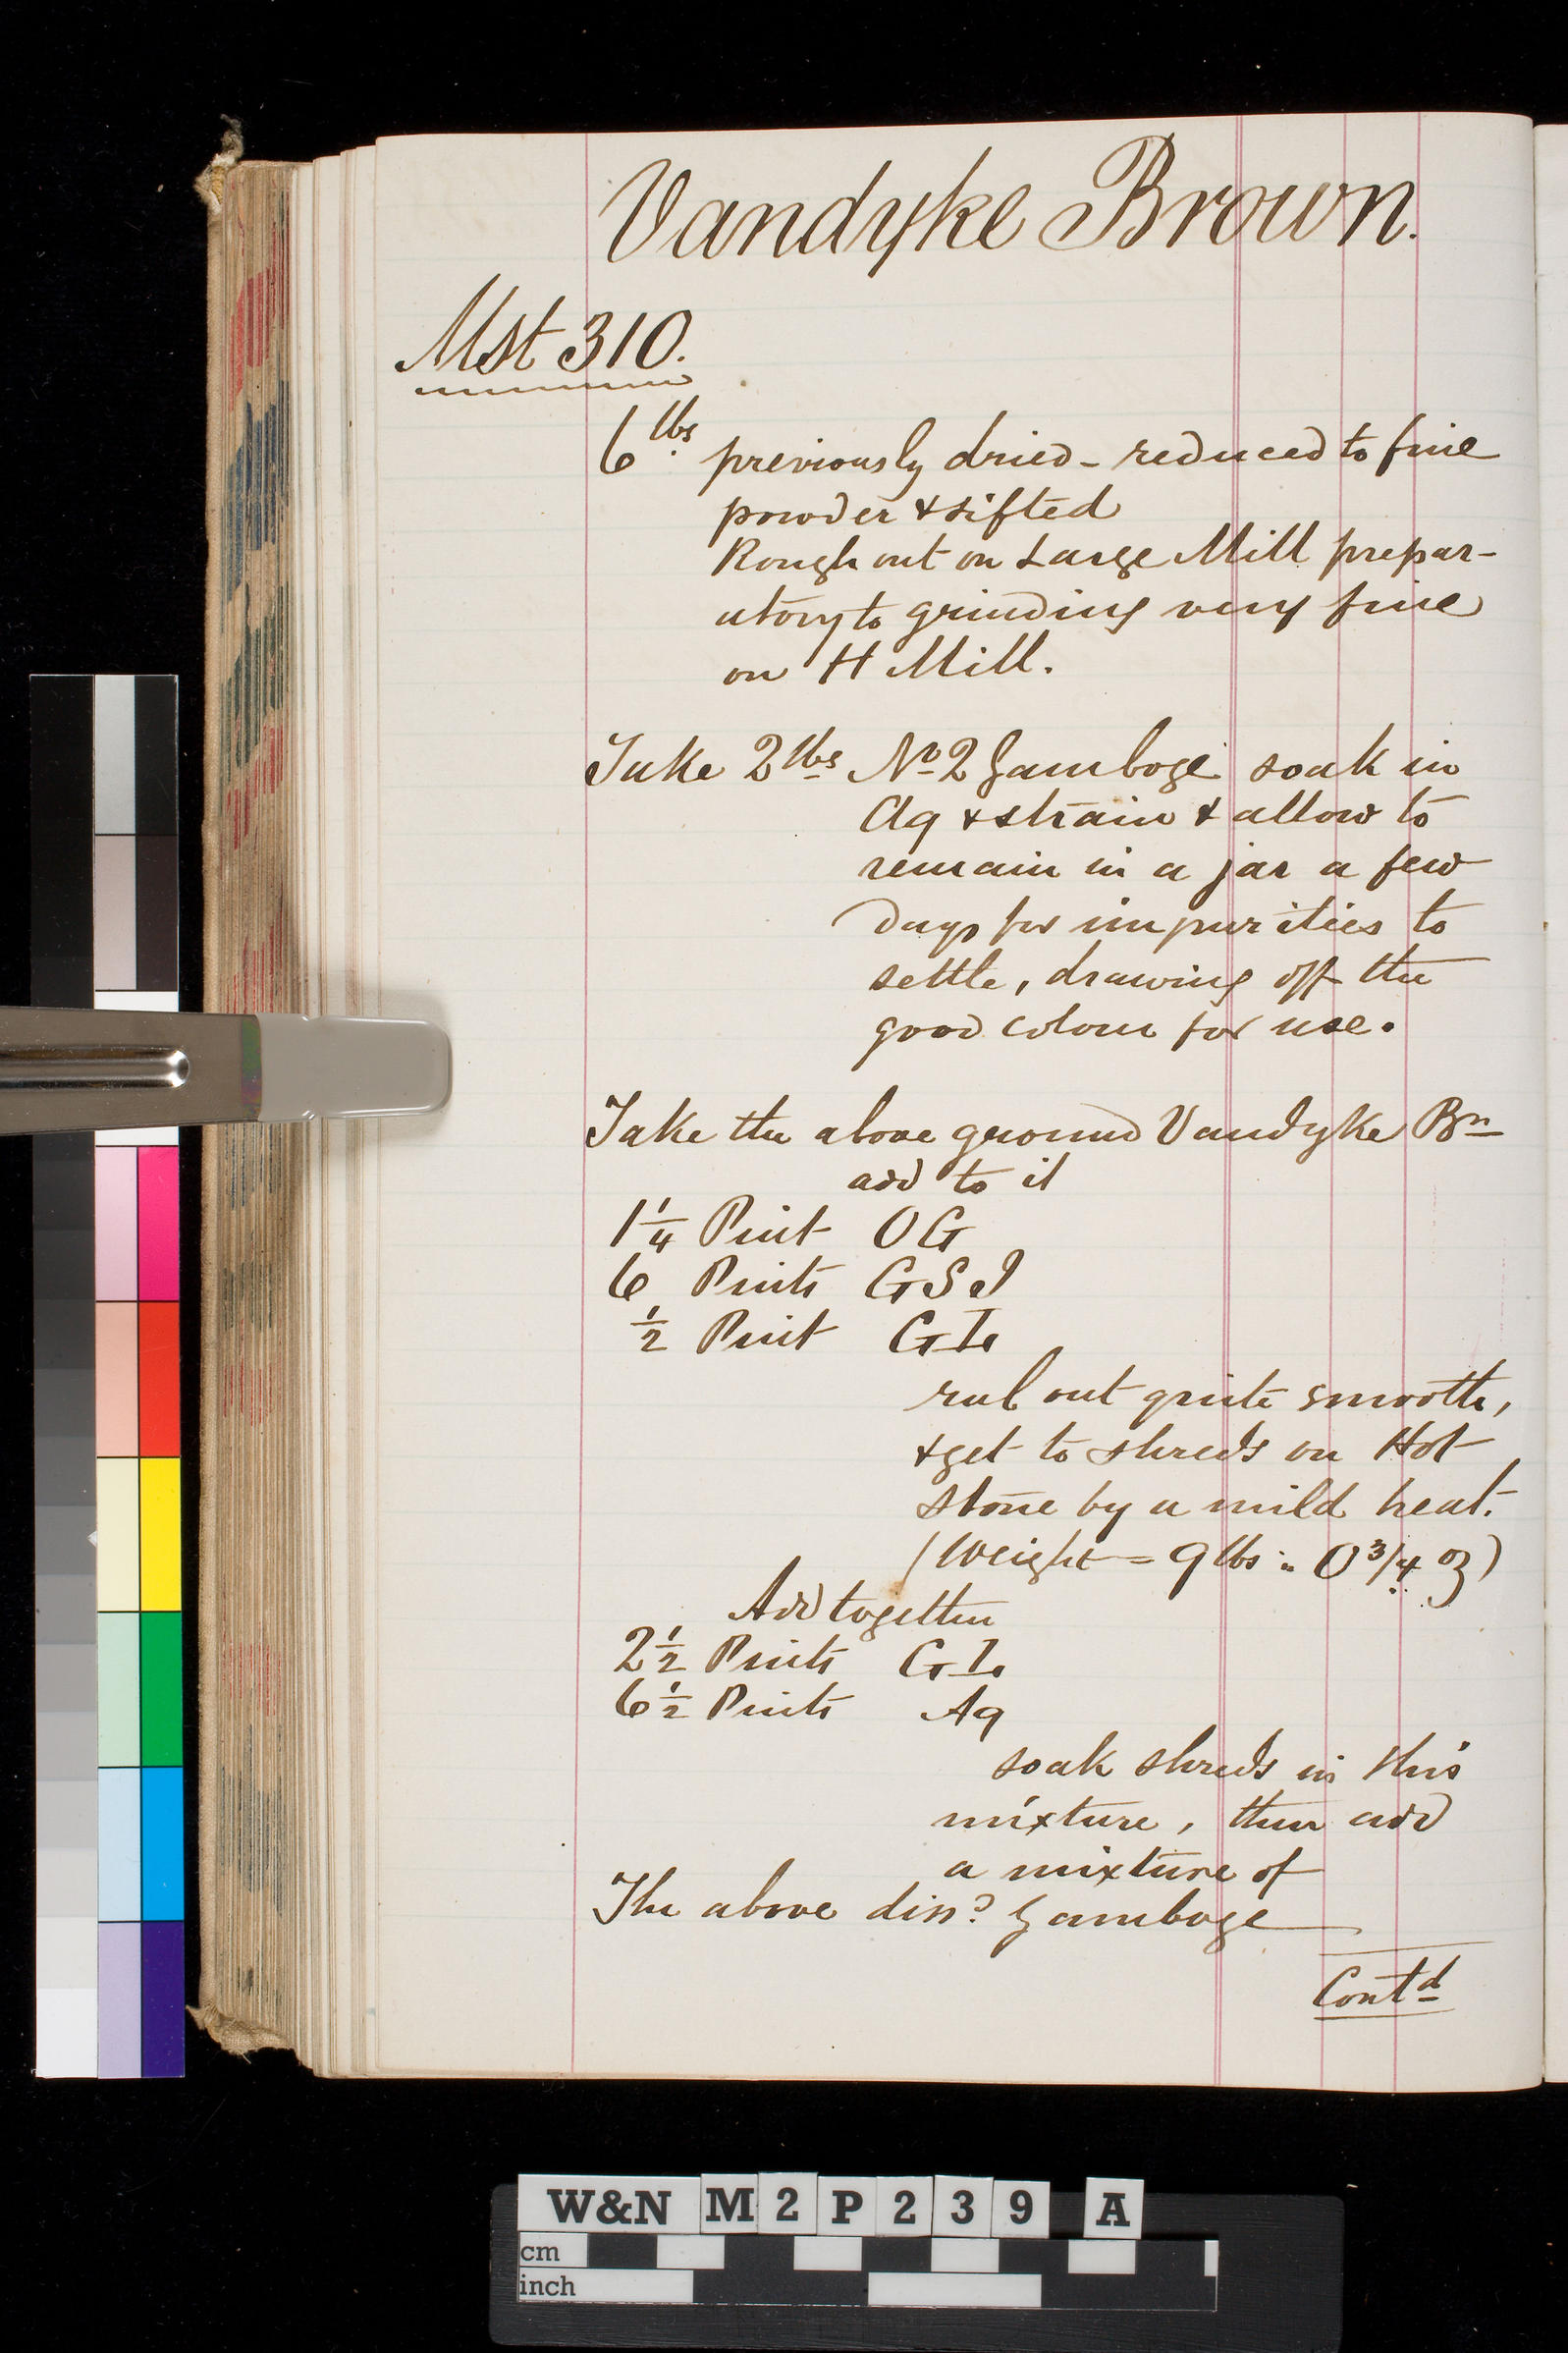 Vandyke Brown.
Mst 310.
6 lbs previously dried - reduced to fine
powder & sifted
Rough out on Large Mill prepar-
atory to grinding very fine
on H Mill.
Take 2 lbs No 2 Gamboge soak in
Aq & strain & allow to
remain in a jar a few
days for impurities to
settle, drawing off the
good colour for use.
Take the above ground Vandyke Bn
add to it
1 1/4 Pint OG
6 Pints GSI
1/2 Pint GL
rub out quite smooth,
& get to shreds on Hot
stone by a mild heat.
(Weight = 9 lbs .. 0 3/4 oz)
Add together
2 1/2 Pints GL
6 1/2 Pints Aq
soak shreds in this
mixture, then add
a mixture of
The above diss? Gamboge
Contd
W&N M2P239 A
cm
inch